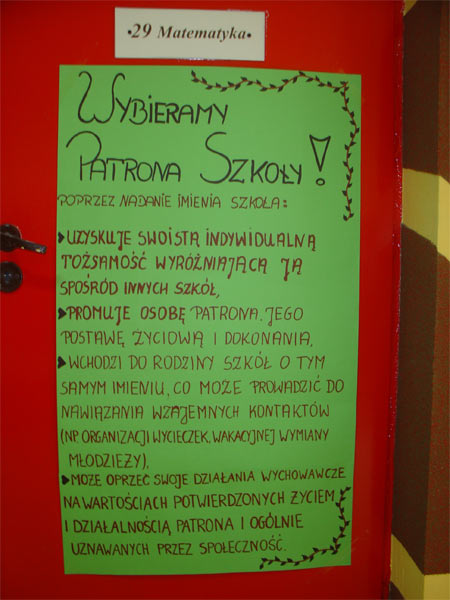 •29 Matematyka•
WYBIERAMY
PATRONA SZKOŁY!
POPRZEZ NADANIE IMIENIA SZKOŁA:
UZYSKUJE SWOISTĄ INDYWIDUALNĄ
TOŻSAMOŚĆ WYRÓŻNIAJĄCĄ JĄ
SPOŚRÓD INNYCH SZKÓŁ,
PROMUJE OSOBĘ PATRONA, JEGO
POSTAWĘ ŻYCIOWĄ I DOKONANIA,
WCHODZI DO RODZINY SZKÓŁ O TYM
SAMYM IMIENIU, CO MOŻE PROWADZIĆ DO
NAWIĄZANIA WZAJEMNYCH KONTAKTÓW
(NP. ORGANIZACJI WYCIECZEK, WAKACYJNEJ WYMIANY
MŁODZIEŻY),
MOŻE OPRZEĆ SWOJE DZIAŁANIA WYCHOWAWCZE
NA WARTOŚCIACH POTWIERDZONYCH ŻYCIEM
I DZIAŁALNOŚCIĄ PATRONA I OGÓLNIE
UZNAWANYCH PRZEZ SPOŁECZNOŚĆ.